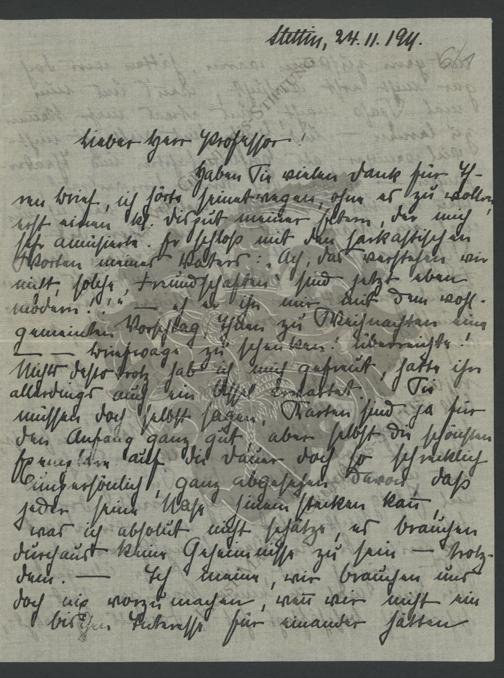 Stettin, 24.11.1911.
Lieber Herr Professor!
Haben Sie vielen Dank für Ih-
ren Brief, ich hörte seinetwegen, ohne es zu wollen,
erst einen kl. Disput meiner Eltern, der mich
sehr amüsierte. Er schloß mit den sarkastischen
Worten meines Vaters: „Ach, das verstehen wir
nicht, solche „Freundschaften“ sind jetzt eben
modern!“ — als er ihn mir mit dem wohl-
gemeinten Vorschlag, Ihnen zu Weihnachten eine
— — Briefwage zu schenken! überreichte!
Nichts desto trotz hab ich mich gefreut, hatte ihn
allerdings auch ein bissel erwartet. Sie
müssen doch selbst sagen, Karten sind ja für
den Anfang ganz gut, aber selbst die schönsten
auf die Dauer doch so schrecklich
unpersönlich, ganz abgesehen davon daß
jeder seine Nase hinein stecken kann,
was ich absolut nicht schätze, es brauchen
durchaus keine Geheimnisse zu sein — trotz-
dem. — Ich meine, wir brauchen uns
doch nix vorzumachen, wenn wir nicht ein
bischen Interesse für einander hätten